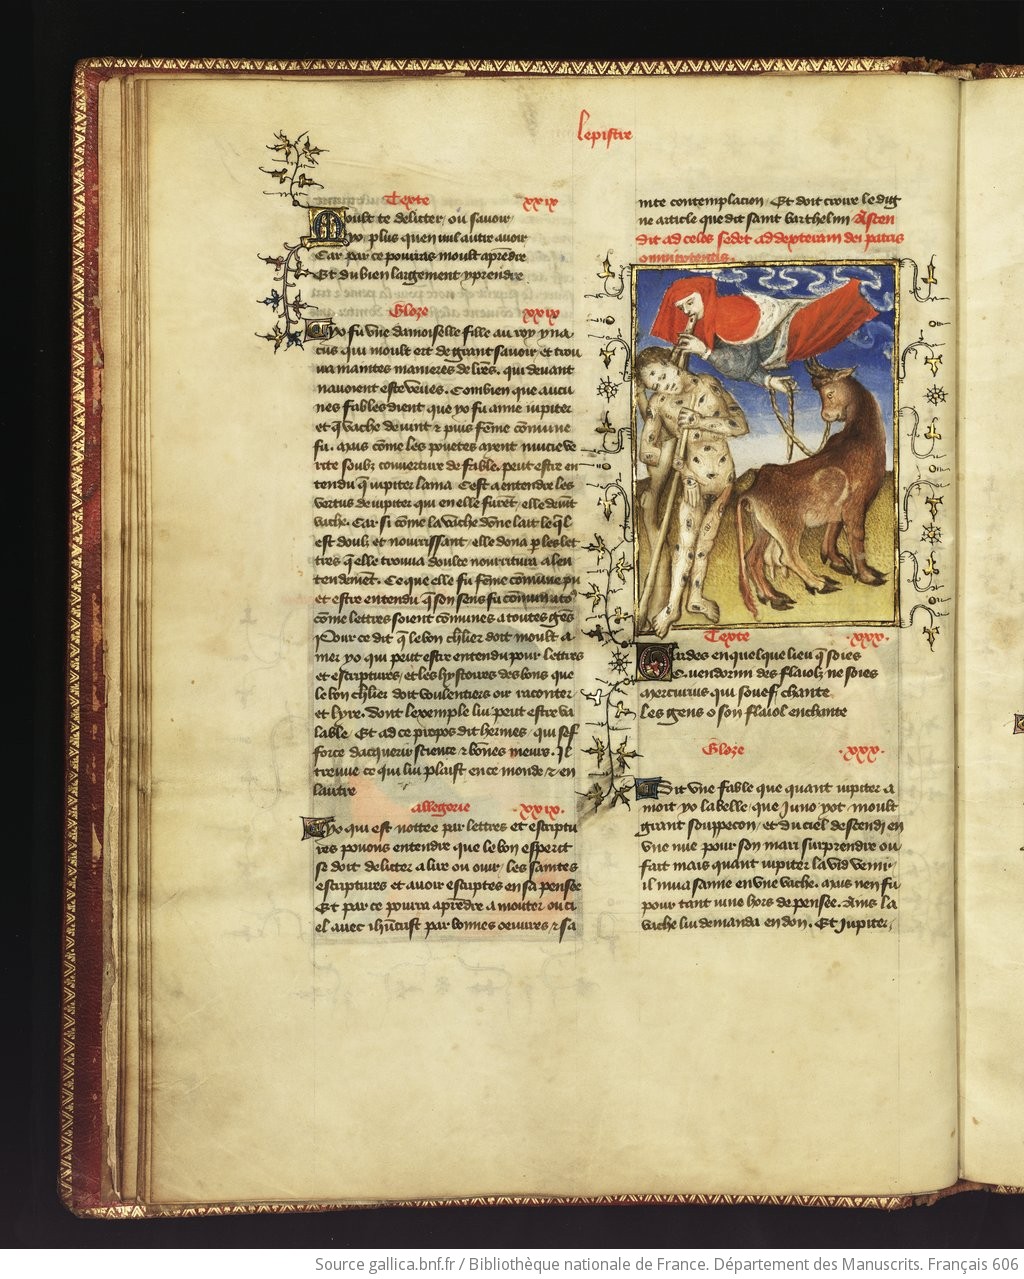 Lepistre
Texte xxix
Moult te delitter ou savoir
Yo plus quen nul autre avoir
Car par ce pourras moult aprēdre
Et du bien largement y prendre
Gloze xxix
Yo fu une damoiselle fille au roy yna
cus qui moult ert de grant savoir et trou
va maintes manieres de lr̄es. qui devant
navoient este veues. Combien que aucu
nes fables dient que yo fu amie iupiter
et q̄ vache devint & puis fēme cōmune
fu. Mais cōme les pouetes ayent muce ve
rite soubz couverture de fable. peut estre en
tendu q̄ iupiter lama Cest a entendre les
vertus de iupiter qui en elle furēt elle devīt
vache. Car si cōme la vache dōne lait le q̄l
est doulz et nourrissant elle dona p les let
tres q̄ elle trouva doulce nourriture a len
tendemēt. Ce que elle fu fēme cōmune pu
et estre entendu q̄ son sens fu cōmun a to9
cōme lettres soient cōmunes a toutes gēs
Pour ce dit q̄ le bon ch̄lier doit moult a
mer yo qui peut estre entendu pour lettres
et escriptures et les hystoires des bons que
le bon ch̄lier doit voulentiers oir raconter
et lyre. dont lexemple lui peut estre va
lable Et ad ce propos dit hermes qui sef
force dacquerir science & bōnes meurs. Il
treuve ce qui lui plaist en ce monde & en
lautre
Allegorie xxix.
Yo qui est nottee par lettres et escriptu
res pouons entendre que le bon esperit
se doit delitter a lire ou ouir les saintes
escriptures et avoir escriptes en sa pensee
Et par ce pourra aprēdre a monter ou ci
el avec ihūcrist par bonnes oeuvres & sa
inte contemplacion Et doit croire le dig
ne article que dit saint barthelmi Ascen
dit ad celos sedet ad dexteram dei patris
omnipotentis.
Texte .xxx.
Gardes en quelque lieu q̄ soies
Quendormi des flaiolz ne soies
Mercurius qui souef chante
Les gens o son flaiol enchante
Gloze .xxx.
Dit une fable que quant iupiter a
moit yo la belle que Juno yot moult
grant souppecon et du ciel descendi en
une nue pour son mari surprendre ou
fait mais quant iupiter la vid venir
il mua samie en une vache. mais nen fu
pour tant iuno hors de pensee. Ains la
vache lui demanda en don. Et Jupiter,
Source gallica.bnf.fr / Bibliothèque nationale de France. Département des Manuscrits. Français 606